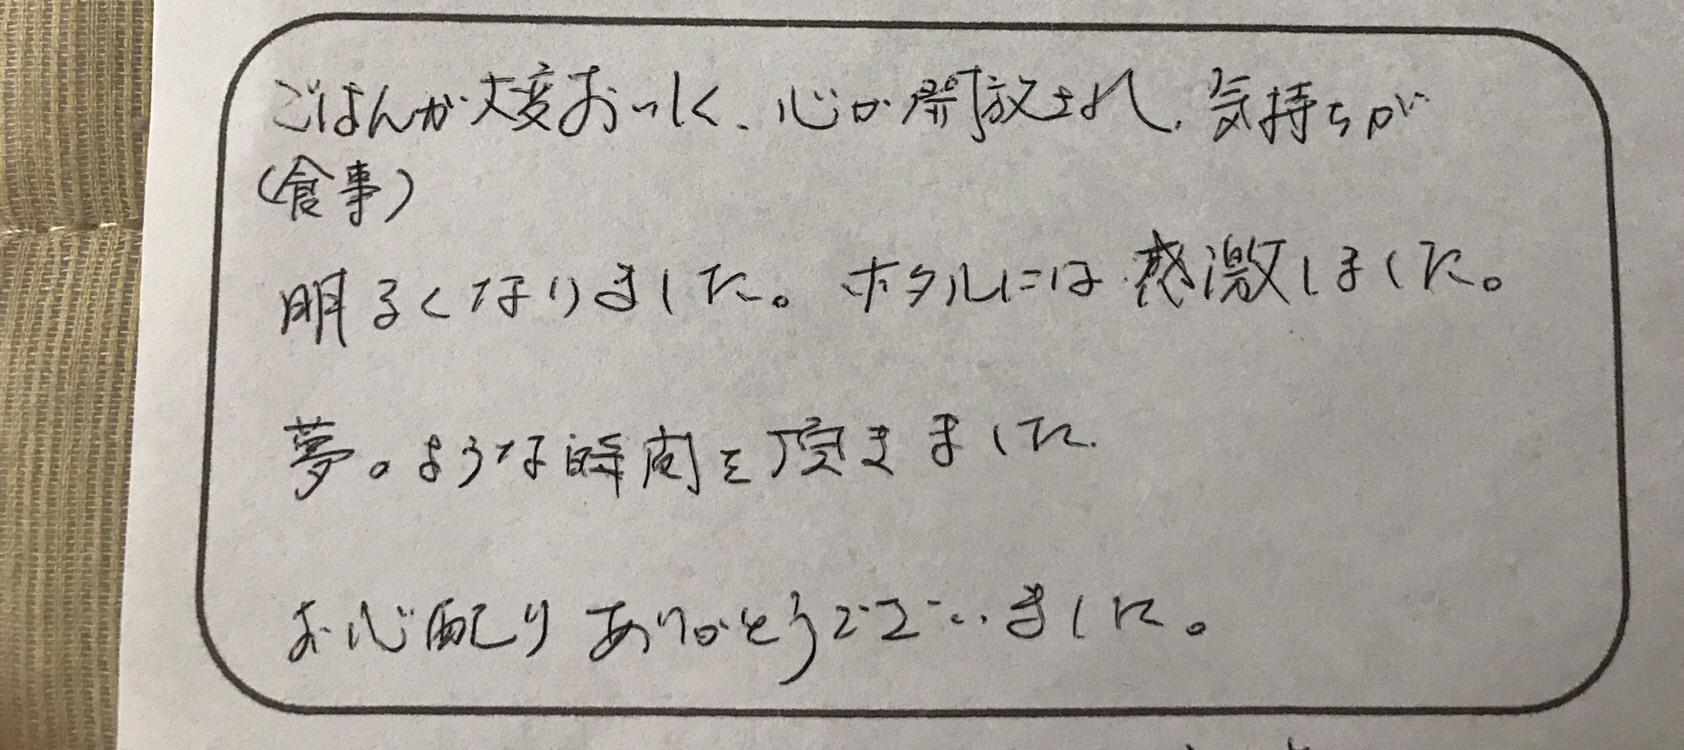 ごはんが大変おいしく、心が開放され、気持ちが
(食事)
明るくなりました。ホタルには感激しました。
夢のような時間を頂きました
お心配りありがとうございました。